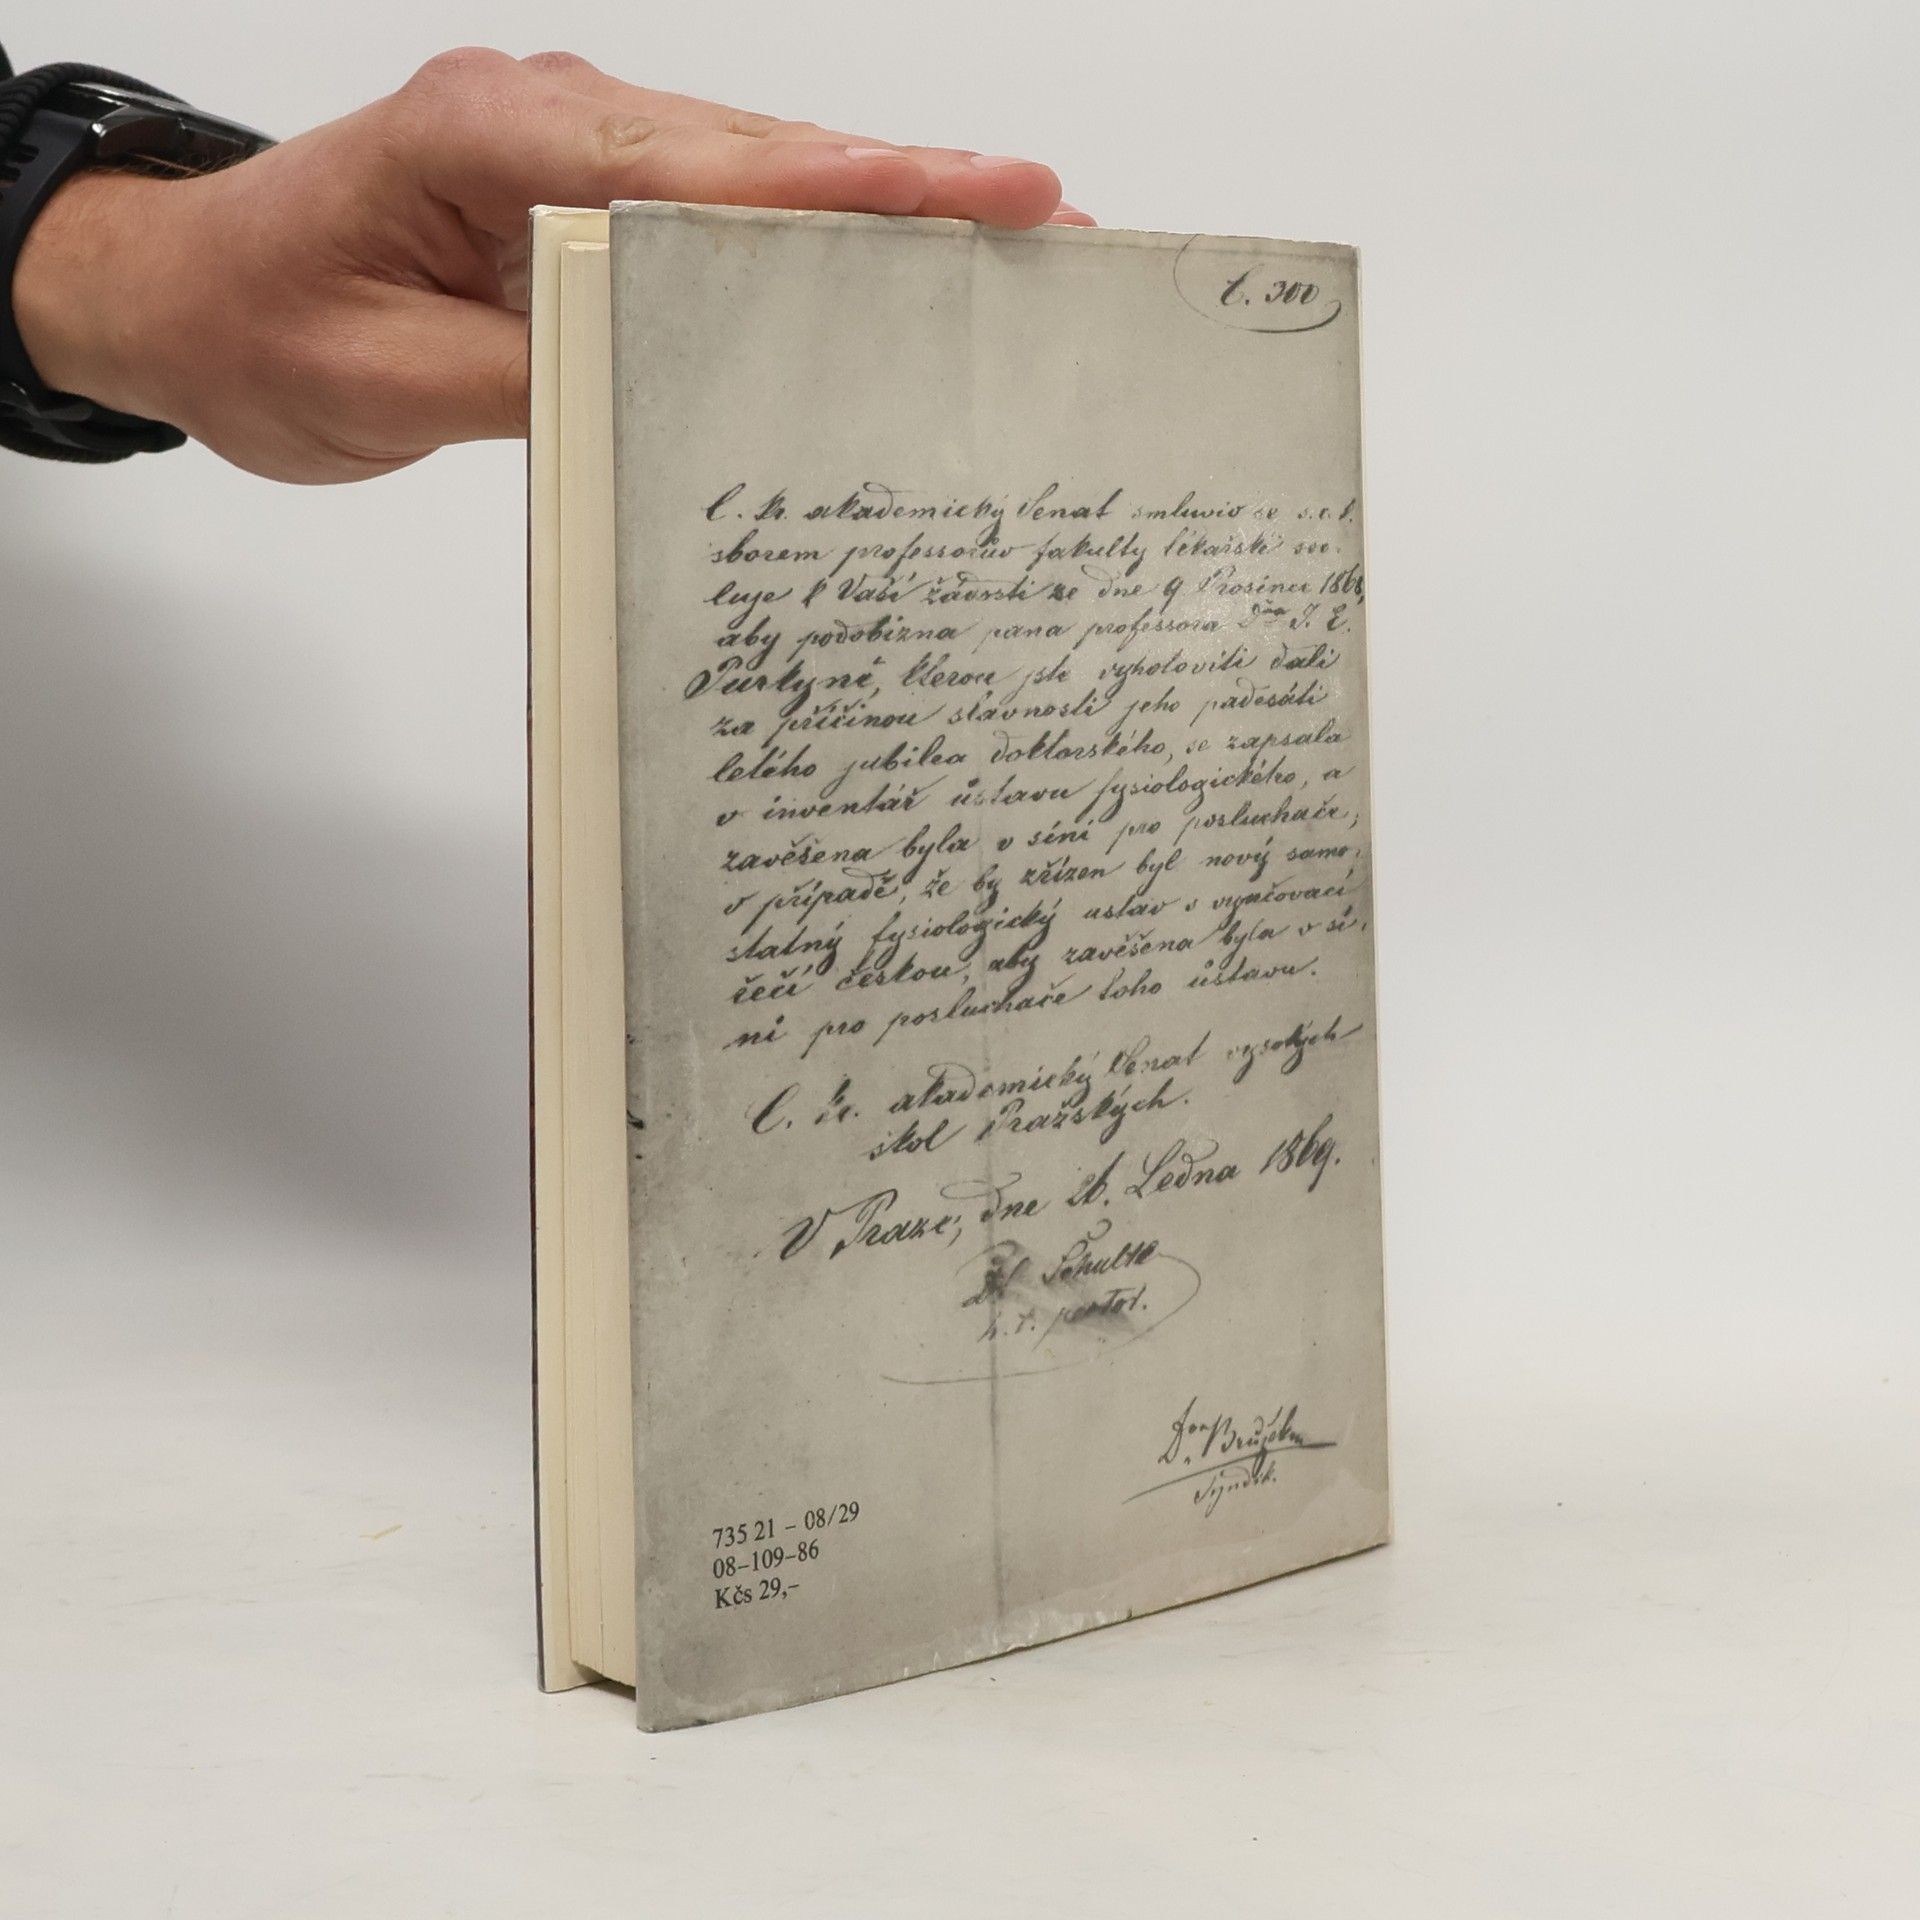 Č. 300
C. kr. akademický Senat smluviv se s. c. k.
sborem professorův fakulty lékařské svo-
luje k Vaší žádosti ze dne 9 Prosince 1868,
aby podobizna pana professora Dra J. E.
Purkyně, kterou jste vyhotoviti dali
za příčinou slavnosti jeho padesáti
letého jubilea doktorského, se zapsala
v inventář ůstavu fysiologického, a
zavěšena byla v síni pro posluchače;
v případě, že by zřízen byl nový samo-
statný fysiologický ustav s vyučovací
řečí českou, aby zavěšena byla v sí-
ni pro posluchače toho ůstavu.
C. kr. akademický Senat vysokých
škol Pražských.
V Praze, dne 26. Ledna 1869.
Dr Schulte
Dr Brůžek
Syndik.
735 21 – 08/29
08–109–86
Kčs 29,–